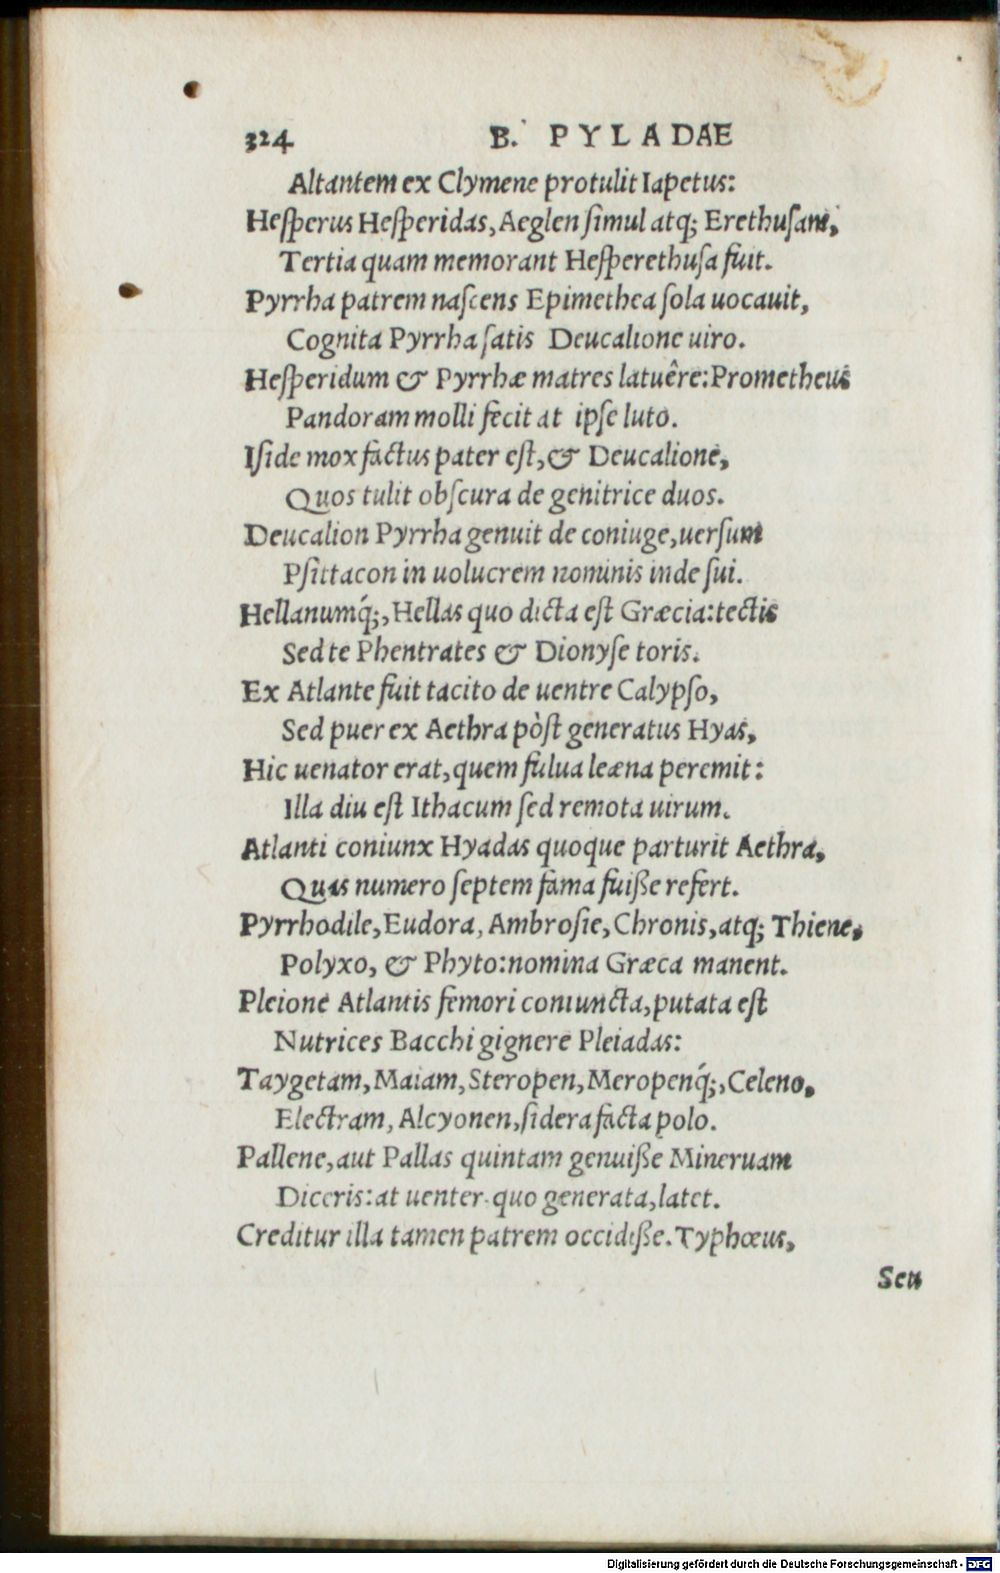 324 B. PYLADAE
Altantem ex Clymene protulit Iapetus:
Hesperus Hesperidas, Aeglen simul atq; Erethusam,
Tertia quam memorant Hesperethusa fuit.
Pyrrha patrem nascens Epimethea sola uocauit,
Cognita Pyrrha satis Deucalione uiro.
Hesperidum & Pyrrhæ matres latuêre: Prometheus
Pandoram molli fecit at ipse luto.
Iside mox factus pater est, & Deucalione,
Quos tulit obscura de genitrice duos.
Deucalion Pyrrha genuit de coniuge, uersum
Psittacon in uolucrem nominis inde sui.
Hellanumq́;, Hellas quo dicta est Græcia: tectis
Sed te Phentrates & Dionyse toris.
Ex Atlante fuit tacito de uentre Calypso,
Sed puer ex Aethra pòst generatus Hyas,
Hic uenator erat, quem fulua leæna peremit:
Illa diu est Ithacum sed remota uirum.
Atlanti coniunx Hyadas quoque parturit Aethra,
Quas numero septem fama fuiße refert.
Pyrrhodile, Eudora, Ambrosie, Chronis, atq; Thiene,
Polyxo, & Phyto: nomina Græca manent.
Pleione Atlantis femori coniuncta, putata est
Nutrices Bacchi gignere Pleiadas:
Taygetam, Maiam, Steropen, Meropenq́;, Celeno,
Electram, Alcyonen, sidera facta polo.
Pallene, aut Pallas quintam genuiße Mineruam
Diceris: at uenter quo generata, latet.
Creditur illa tamen patrem occidiße. Typhœus,
Seu
Digitalisierung gefördert durch die Deutsche Forschungsgemeinschaft - DFG